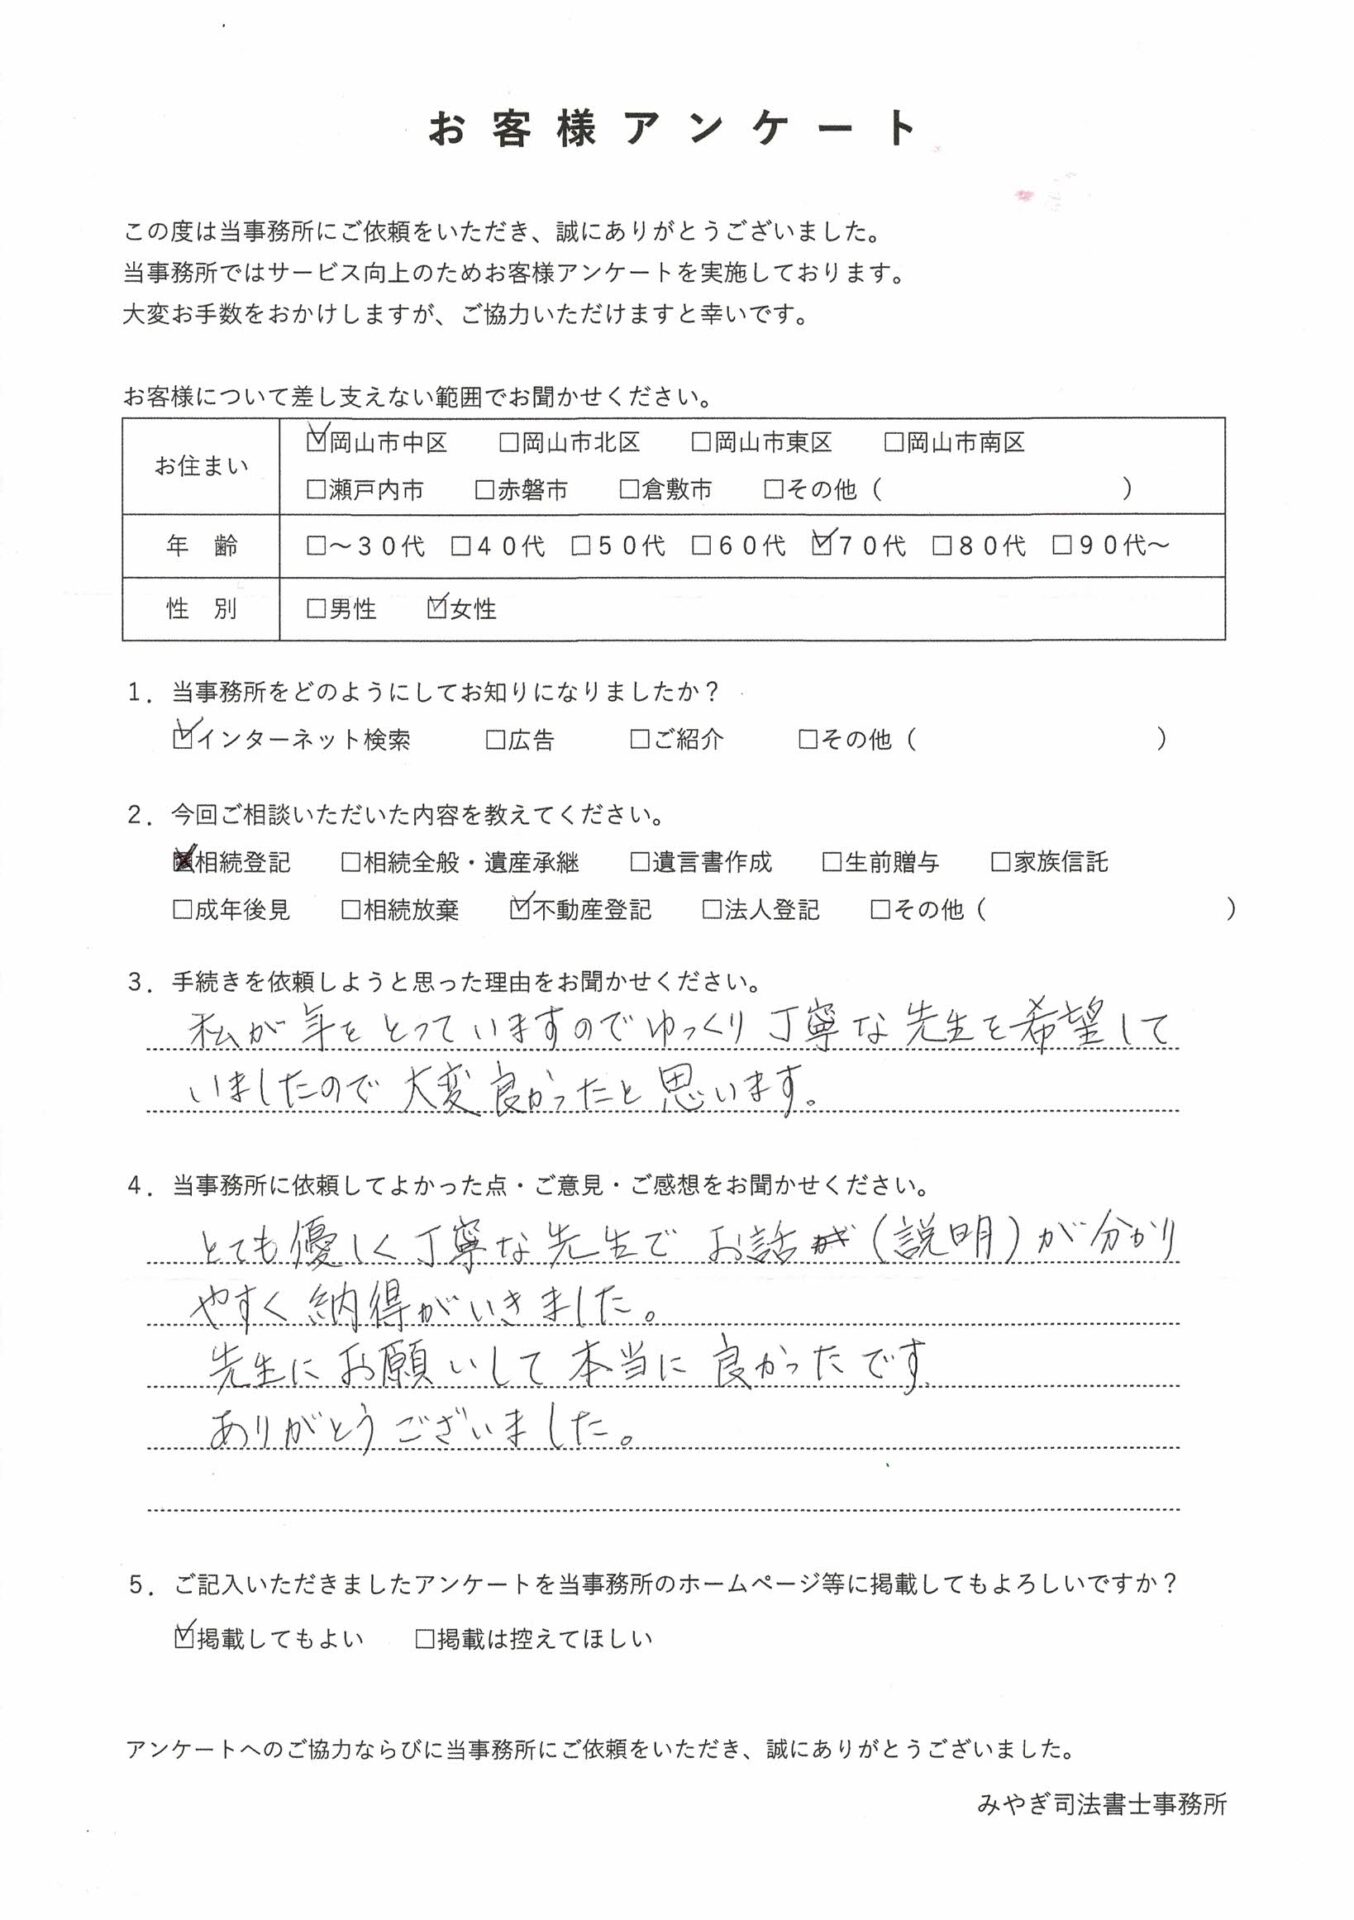 お客様アンケート
この度は当事務所にご依頼をいただき、誠にありがとうございました。
当事務所ではサービス向上のためお客様アンケートを実施しております。
大変お手数をおかけしますが、ご協力いただけますと幸いです。
お客様について差し支えない範囲でお聞かせください。
お住まい ☑岡山市中区 □岡山市北区 □岡山市東区 □岡山市南区
□瀬戸内市 □赤磐市 □倉敷市 □その他（ ）
年齢 □～３０代 □４０代 □５０代 □６０代 ☑７０代 □８０代 □９０代～
性別 □男性 ☑女性
１．当事務所をどのようにしてお知りになりましたか？
☑インターネット検索 □広告 □ご紹介 □その他（ ）
２．今回ご相談いただいた内容を教えてください。
☒相続登記 □相続全般・遺産承継 □遺言書作成 □生前贈与 □家族信託
□成年後見 □相続放棄 ☑不動産登記 □法人登記 □その他（ ）
３．手続きを依頼しようと思った理由をお聞かせください。
私が年をとっていますのでゆっくり丁寧な先生を希望して
いましたので大変良かったと思います。
４．当事務所に依頼してよかった点・ご意見・ご感想をお聞かせください。
とても優しく丁寧な先生でお話（説明）が分かり
やすく納得がいきました。
先生にお願いして本当に良かったです.
ありがとうございました。
５．ご記入いただきましたアンケートを当事務所のホームページ等に掲載してもよろしいですか？
☑掲載してもよい □掲載は控えてほしい
アンケートへのご協力ならびに当事務所にご依頼をいただき、誠にありがとうございました。
みやぎ司法書士事務所